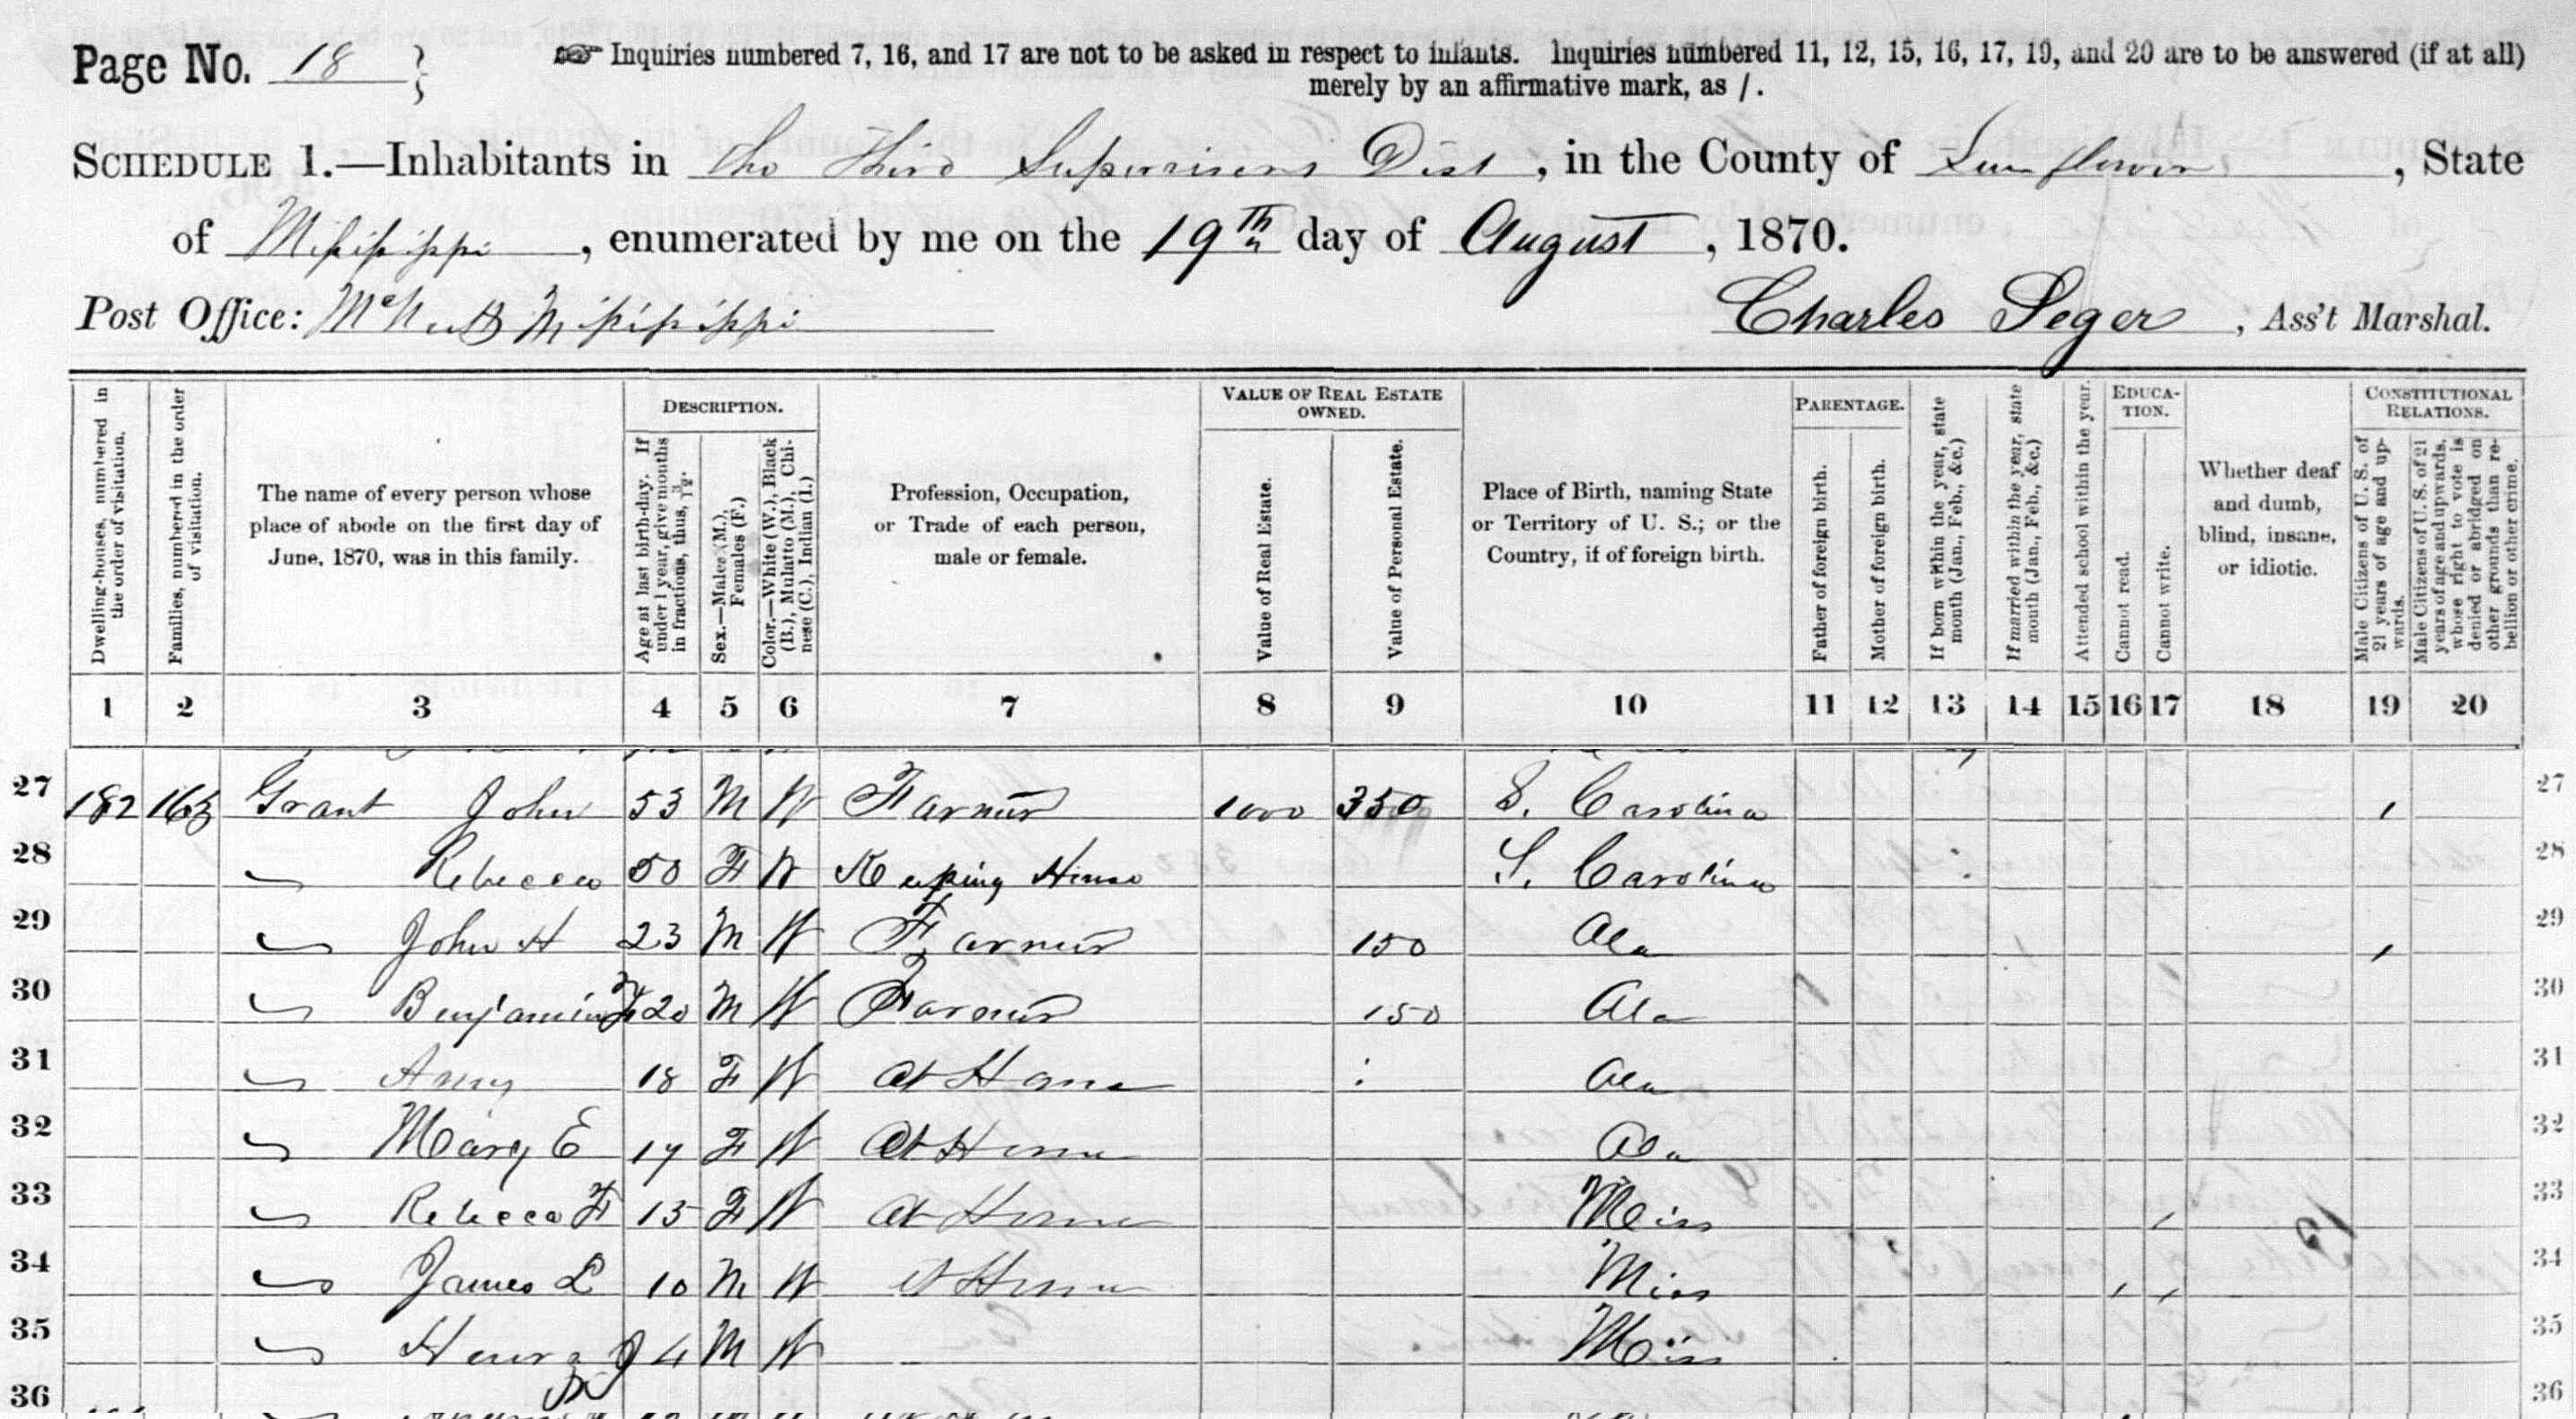 Page No. 18 }
☞ Inquiries numbered 7, 16, and 17 are not to be asked in respect to infants. Inquiries numbered 11, 12, 15, 16, 17, 19, and 20 are to be answered (if at all)
merely by an affirmative mark, as /.
SCHEDULE 1.—Inhabitants in the Third Supervisors Dist, in the County of Sunflower, State
of Mississippi, enumerated by me on the 19th day of August, 1870.
Post Office: McNutt Mississippi Charles Seger, Ass't Marshal.
Dwelling-houses, numbered in the order of visitation.
Families, numbered in the order of visitation.
The name of every person whose place of abode on the first day of June, 1870, was in this family.
DESCRIPTION.
Age at last birth-day. If under 1 year, give months in fractions, thus, 3/12.
Sex.—Males (M.), Females (F.)
Color.—White (W.), Black (B.), Mulatto (M.), Chinese (C.), Indian (I.)
Profession, Occupation, or Trade of each person, male or female.
VALUE OF REAL ESTATE OWNED.
Value of Real Estate.
Value of Personal Estate.
Place of Birth, naming State or Territory of U. S.; or the Country, if of foreign birth.
PARENTAGE.
Father of foreign birth.
Mother of foreign birth.
If born within the year, state month (Jan., Feb., &c.)
If married within the year, state month (Jan., Feb., &c.)
Attended school within the year.
EDUCATION.
Cannot read.
Cannot write.
Whether deaf and dumb, blind, insane, or idiotic.
CONSTITUTIONAL RELATIONS.
Male Citizens of U. S. of 21 years of age and upwards.
Male Citizens of U. S. of 21 years of age and upwards, whose right to vote is denied or abridged on other grounds than rebellion or other crime.
1 2 3 4 5 6 7 8 9 10 11 12 13 14 15 16 17 18 19 20
27 182 163 Grant John 53 M W Farmer 1000 350 S. Carolina / 27
28 Rebecca 50 F W Keeping House S. Carolina 28
29 John H 23 M W Farmer 150 Ala / 29
30 Benjamin F 20 M W Farmer 150 Ala 30
31 Amy 18 F W At Home Ala 31
32 Mary E 17 F W At Home Ala 32
33 Rebecca F 15 F W At Home Miss / 33
34 James L 10 M W At Home Miss / / 34
35 Henry J 4 M W Miss 35
36 36